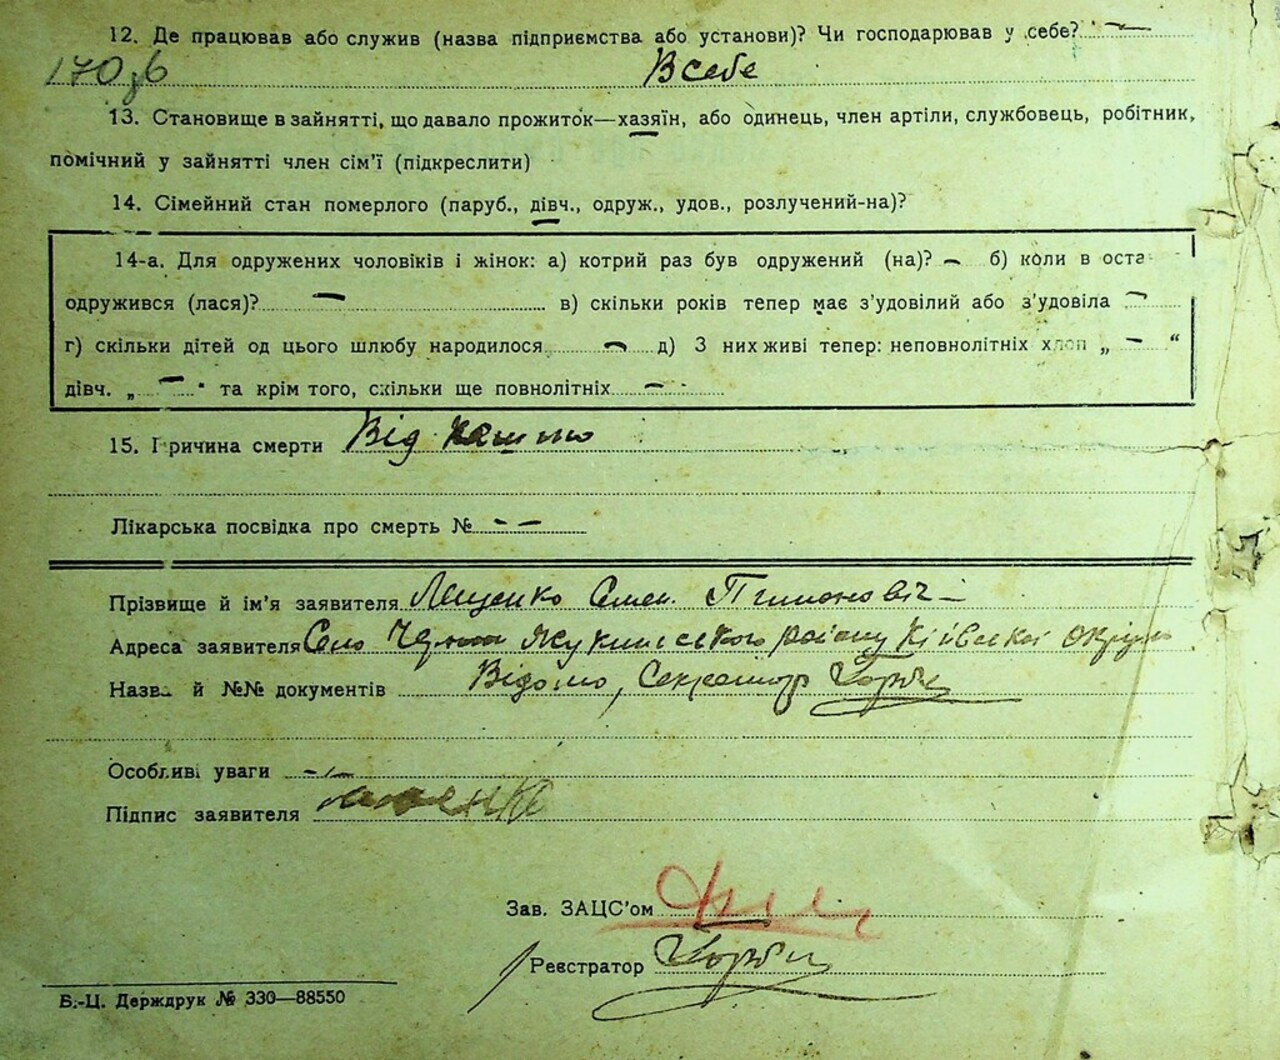 12. Де працював або служив (назва підприємства або установи)? Чи господарював у себе? —
В себе
13. Становище в зайнятті, що давало прожиток—хазяїн, або одинець, член артіли, службовець, робітник,
помічний у зайнятті член сім'ї (підкреслити)
14. Сімейний стан померлого (паруб., дівч., одруж., удов., розлучений-на)?
14-а. Для одружених чоловіків і жінок: а) котрий раз був одружений (на)? — б) коли в оста
одружився (лася)? — в) скільки років тепер має з'удовілий або з'удовіла —
г) скільки дітей од цього шлюбу народилося — д) З них живі тепер: неповнолітніх хлоп „ — “
дівч. „ — " та крім того, скільки ще повнолітніх —
15. Причина смерти Від кашлю
Лікарська посвідка про смерть № — —
Прізвище й ім'я заявителя Лященко Семен
Адреса заявителя Село району Київської округи
Назва й №№ документів Відомо, Секретар
Особливі уваги — —
Підпис заявителя
Зав. ЗАЦС'ом
Реєстратор
Б.-Ц. Держдрук № 330—88550